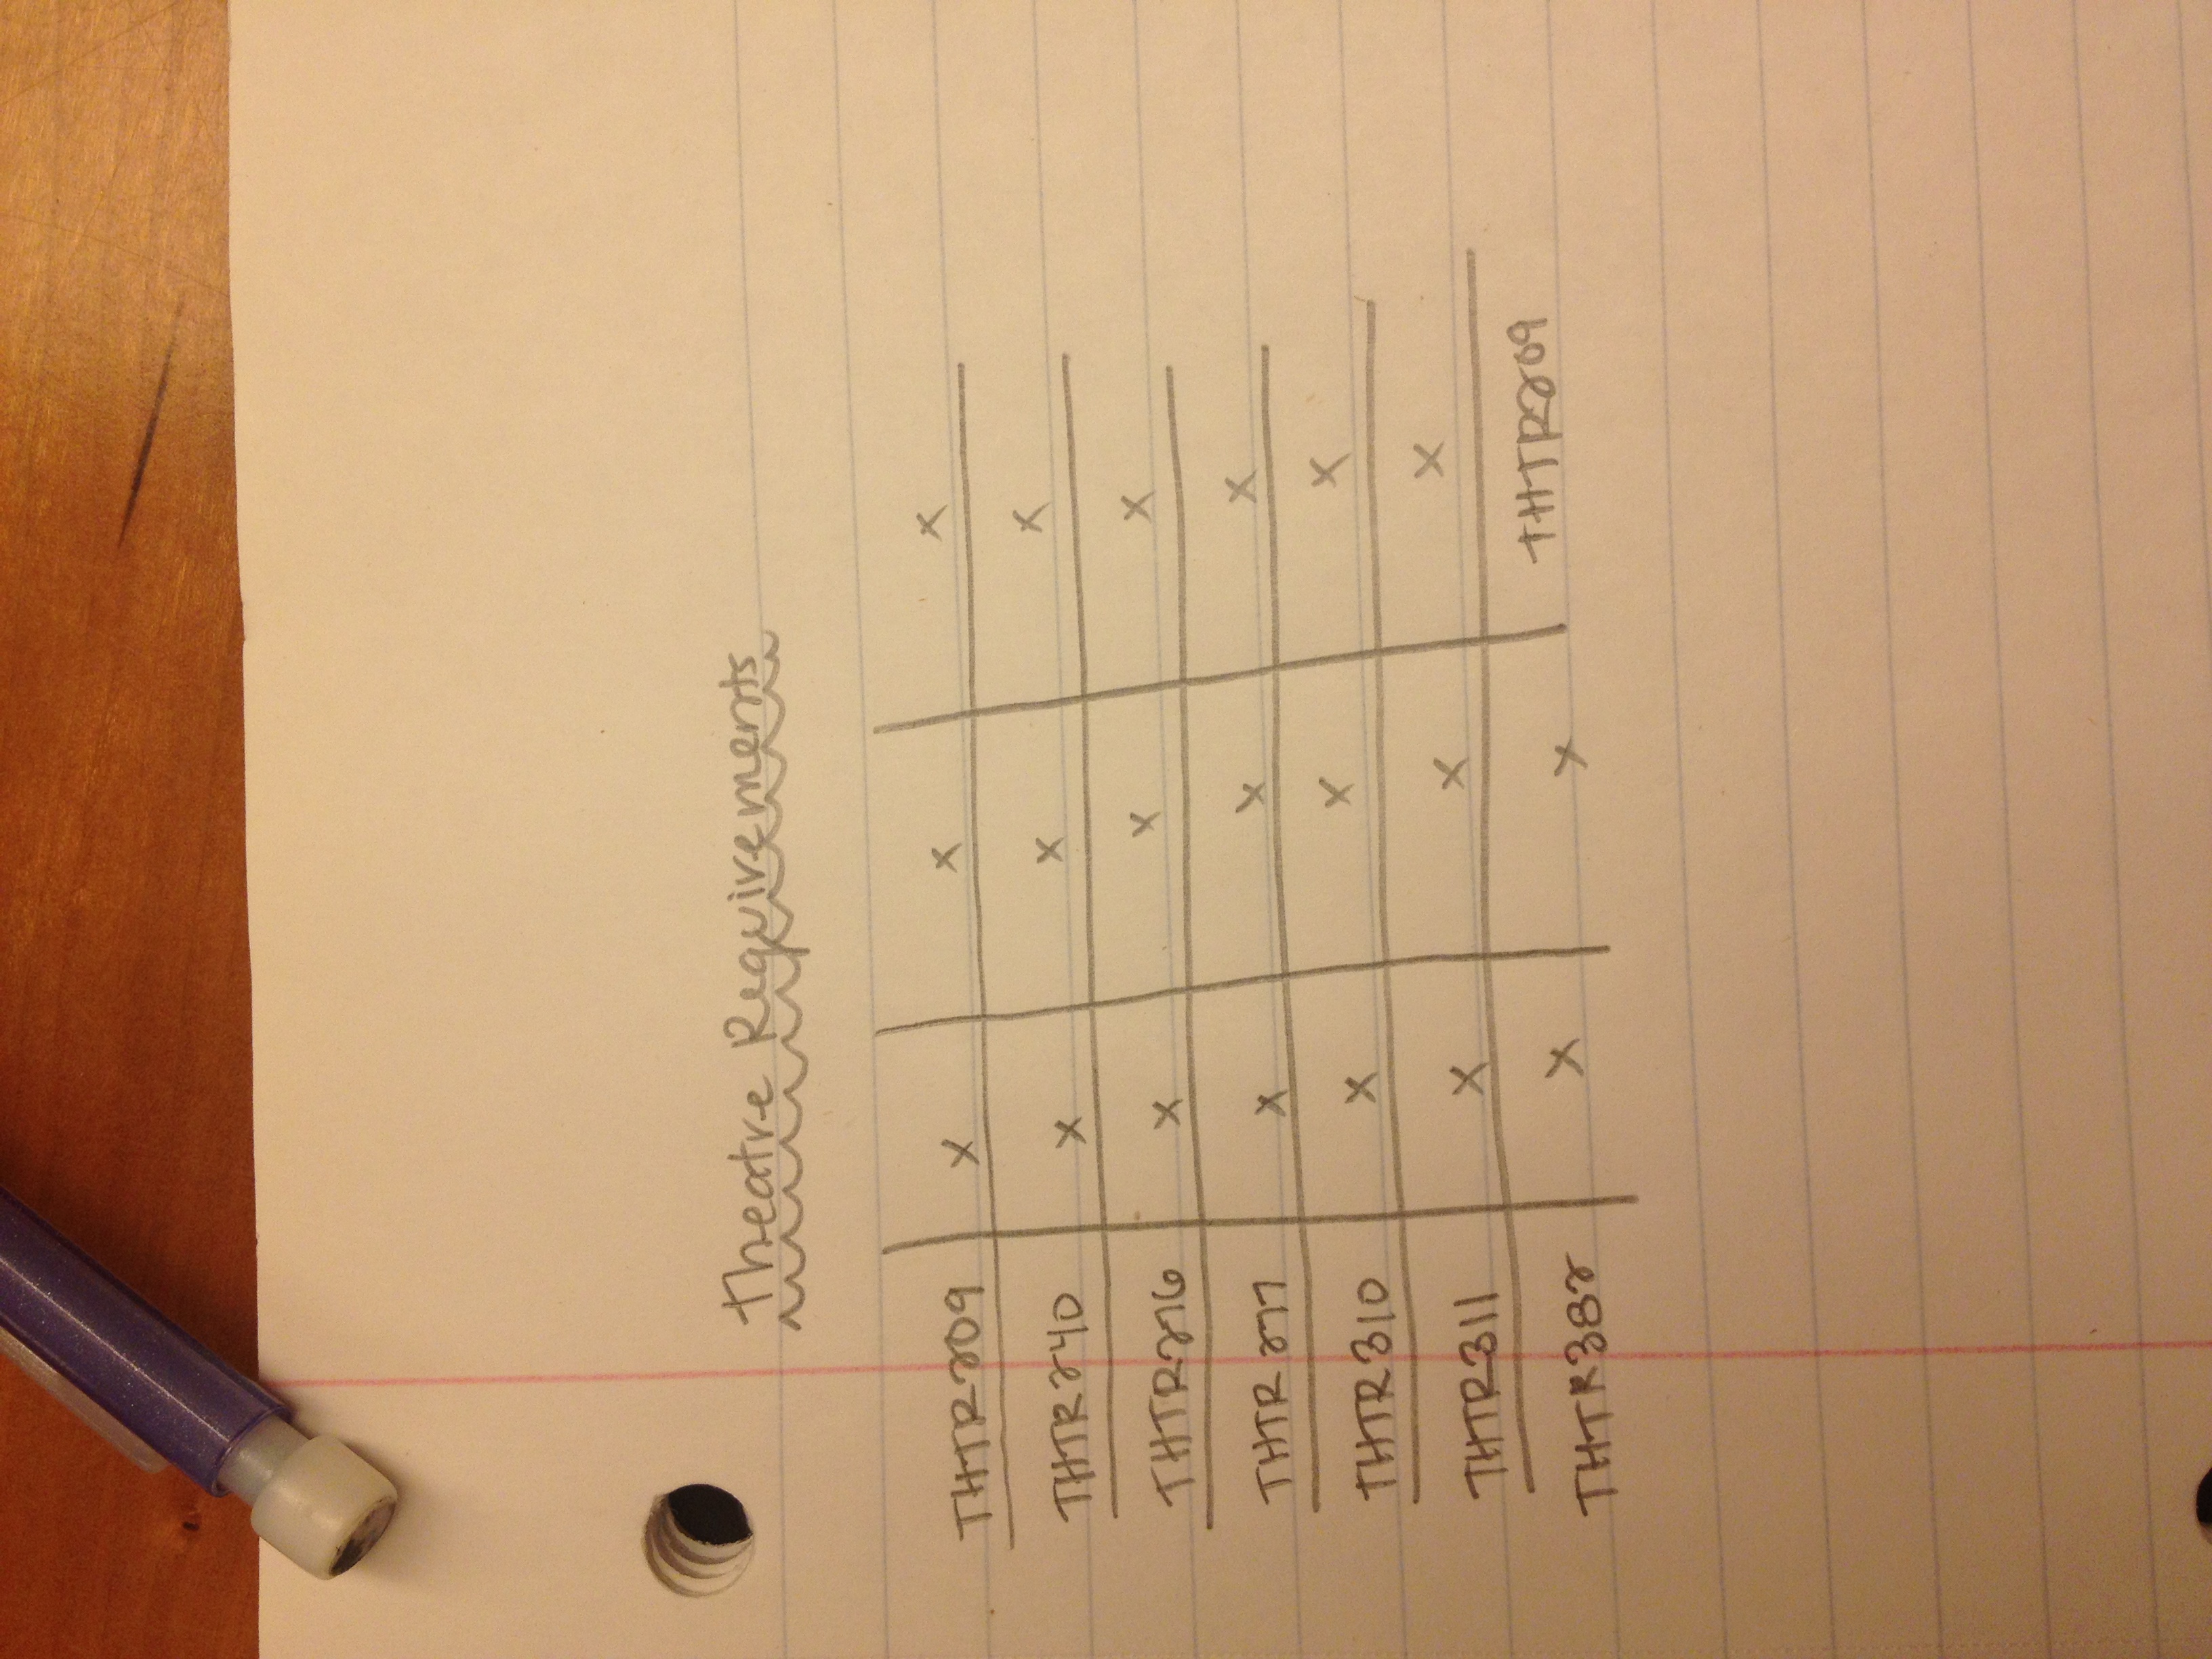 Theatre Requirements
THTR209 x x x
THTR240 x x x
THTR276 x x x
THTR277 x x x
THTR310 x x x
THTR311 x x x
THTR382 x x THTR209